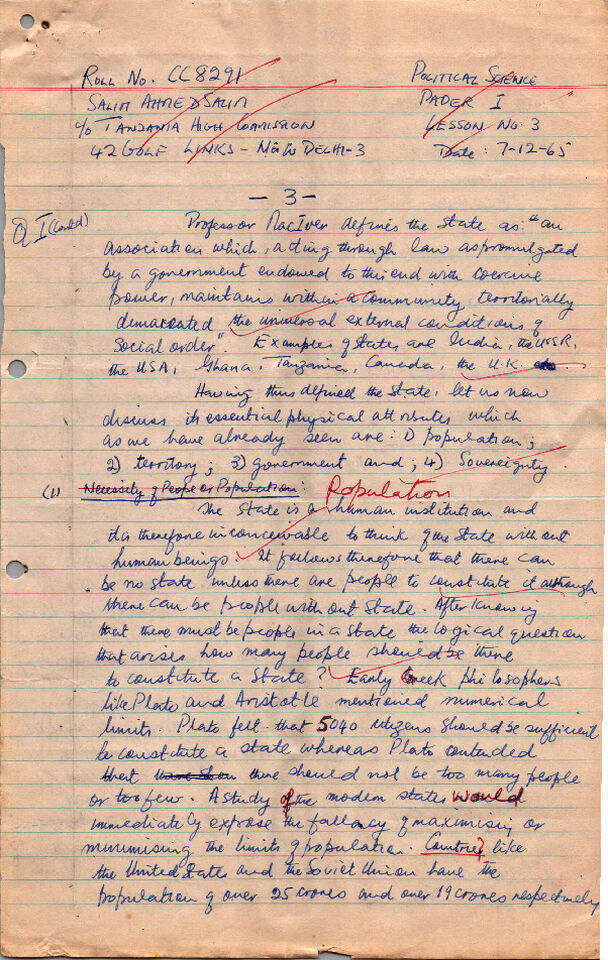 ROLL NO. CC8291
SALIM AHMED SALIM
C/o TANZANIA HIGH COMMISSION
42 GOLF LINKS - NEW DELHI-3
POLITICAL SCIENCE
PAPER I
LESSON NO. 3
Date: 7-12-65
- 3 -
Q I (Contd)
Professor MacIver defines the State as: "an
association which, acting through law as promulgated
by a government endowed to this end with coercive
power, maintains within a community territorially
demarcated the universal external conditions of
Social order". Examples of States are India, the USSR,
the USA, Ghana, Tanzania, Canada, the U.K.
Having thus defined the State, let us now
discuss its essential physical attributes which
as we have already seen are: 1) population;
2) territory; 3) government and; 4) Sovereignty.
(1) Necessity of People or Population: Population
The State is a human institution and
it is therefore inconceivable to think of the State without
human beings. It follows therefore that there can
be no State unless there are people to constitute it although
there can be people without State. After knowing
that there must be people in a State the logical question
that arises how many people should be there
to constitute a State? Early Greek Philosophers
like Plato and Aristotle mentioned numerical
limits. Plato felt that 5040 citizens should be sufficient
to constitute a state whereas Plato contended
that there should not be too many people
or too few. A study of the modern states would
immediately expose the fallacy of maximising or
minimising the limits of population. Countries like
the United States and the Soviet Union have the
population of over 25 crores and over 19 crores respectively